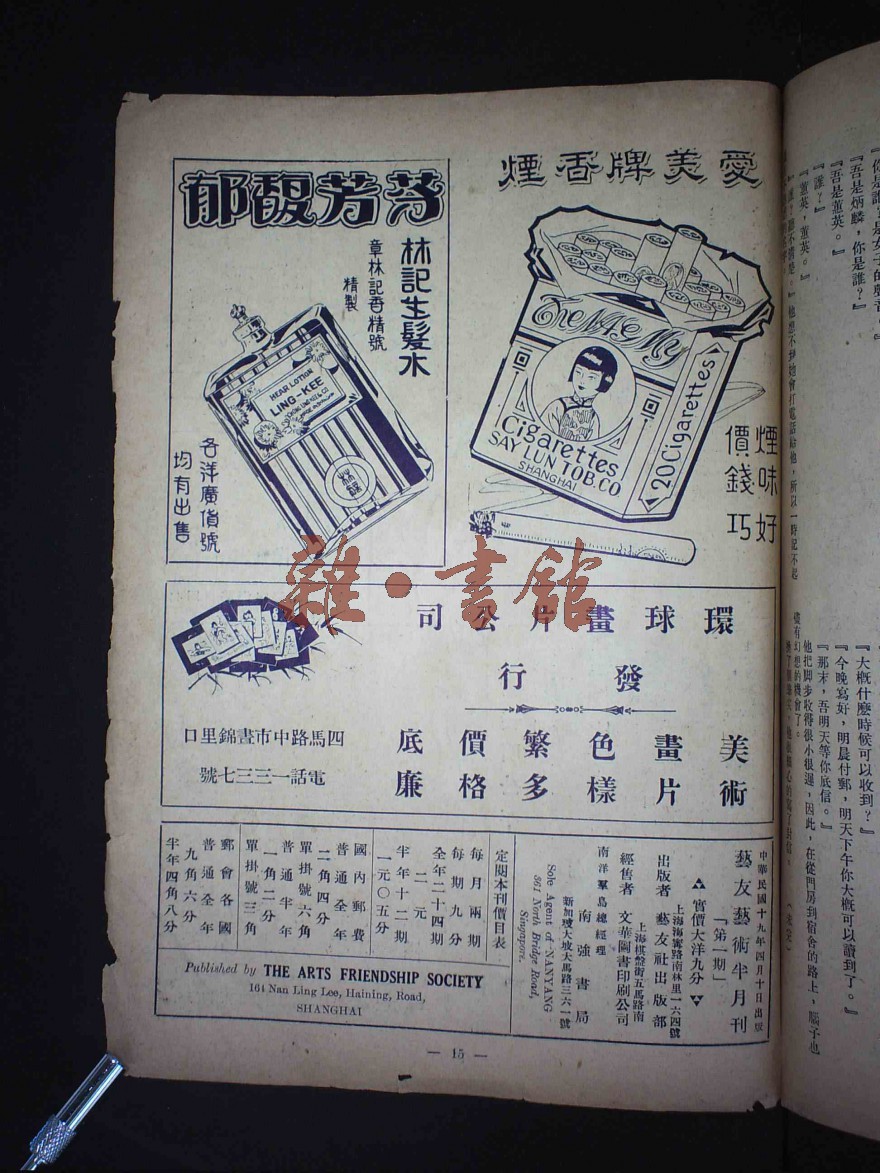 愛美牌香煙
The A.E. Mei
Cigarettes
SAY LUN TOB. CO
SHANGHAI
20 Cigarettes
煙味好
價錢巧
芬芳馥郁
林記生髮水
章林記香精號
精製
HEAR LOTION
LING-KEE
各洋廣貨號
均有出售
雜·書館
環球畫片公司
發行
美術
畫片
色樣
繁多
價格
底廉
四馬路中市晝錦里口
電話一三三七號
中華民國十九年四月十日出版
藝友藝術半月刊
『第一期』
實價大洋九分
上海海寗路南林里一六四號
出版者 藝友社出版部
上海棋盤街五馬路南
經售者 文華圖書印刷公司
南洋羣島總經理
南強書局
新加坡大坡大馬路三六一號
Sole Agent of NANYANG
361 North Bridge Road,
Singapore.
定閱本刊價目表
每月兩期
每期九分
全年二十四期
二元
半年十二期
一元〇五分
國內郵費
普通全年
二角四分
單掛號六角
普通半年
一角二分
單掛號三角
郵會各國
普通全年
九角六分
半年四角八分
Published by THE ARTS FRIENDSHIP SOCIETY
164 Nan Ling Lee, Haining, Road,
SHANGHAI
— 15 —
『你是誰？是女子的聲音。』
『吾是炳麟，你是誰？』
『吾是蕫英。』
『誰？』
『蕫英，蕫英。』
『大概什麼時候可以收到？』
『今晚寫好，明晨付郵，明天下午你大概可以讀到了。』
『那末，吾明天等你底信。』
他把脚步收得很小很遲，因此，在從門房到宿舍的路上，腦子也
儘有幻想的機會了。